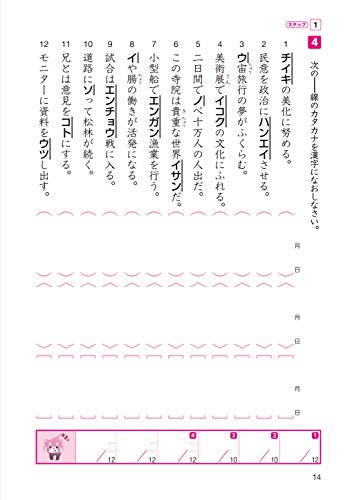 ステップ 1
4 次の――線のカタカナを漢字になおしなさい。
1 チイキの美化に努める。
2 民意を政治にハンエイさせる。
3 ウ宙旅行の夢がふくらむ。
4 美術展でイコクの文化にふれる。
5 二日間でノべ十万人の人出だ。
6 この寺院は貴重な世界イサンだ。
7 小型船でエンガン漁業を行う。
8 イや腸の働きが活発になる。
9 試合はエンチョウ戦に入る。
10 道路にソって松林が続く。
11 兄とは意見をコトにする。
12 モニターに資料をウツし出す。
月 日
月 日
月 日
月 日
1 /12
2 /12
3 /10
4 /12
/12
/12
14